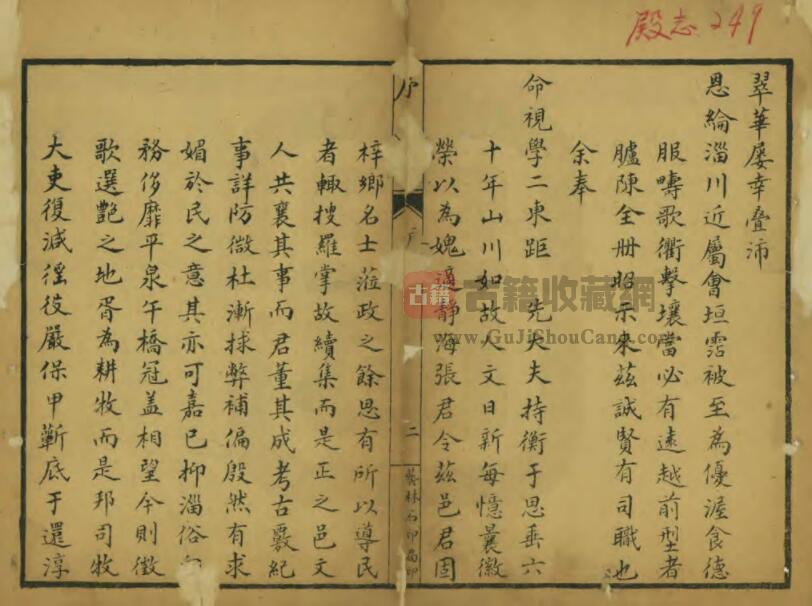 殿志 249
翠華屡幸疊沛
恩綸淄川近屬會垣霑被至為優渥食德
服疇歌衢擊壤當必有遠越前型者
臚陳全册昭示來茲誠賢有司職也
余奉
命視學二東距 先大夫持衡于思垂六
十年山川如故人文日新每憶曩徽
榮以為媿 靜海張君令茲邑君固
序
二
藝林石印局印
梓鄉名士蒞政之餘思有所以導民
者輙搜羅掌故續集而是正之邑文
人共襄其事而君董其成考古覈紀
事詳防微杜漸捄弊補偏殷然有求
媚於民之意其亦可嘉已抑淄俗
務侈靡平泉午橋冠盖相望今則徵
歌選艷之地胥為耕牧而是邦司牧
大吏復減徭役嚴保甲蘄底于還淳
古籍 古籍收藏网
www.GuJiShouCang.com